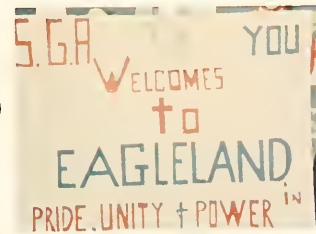 S.G.A YOU
WELCOMES
to
EAGLELAND
in
PRIDE. UNITY + POWER